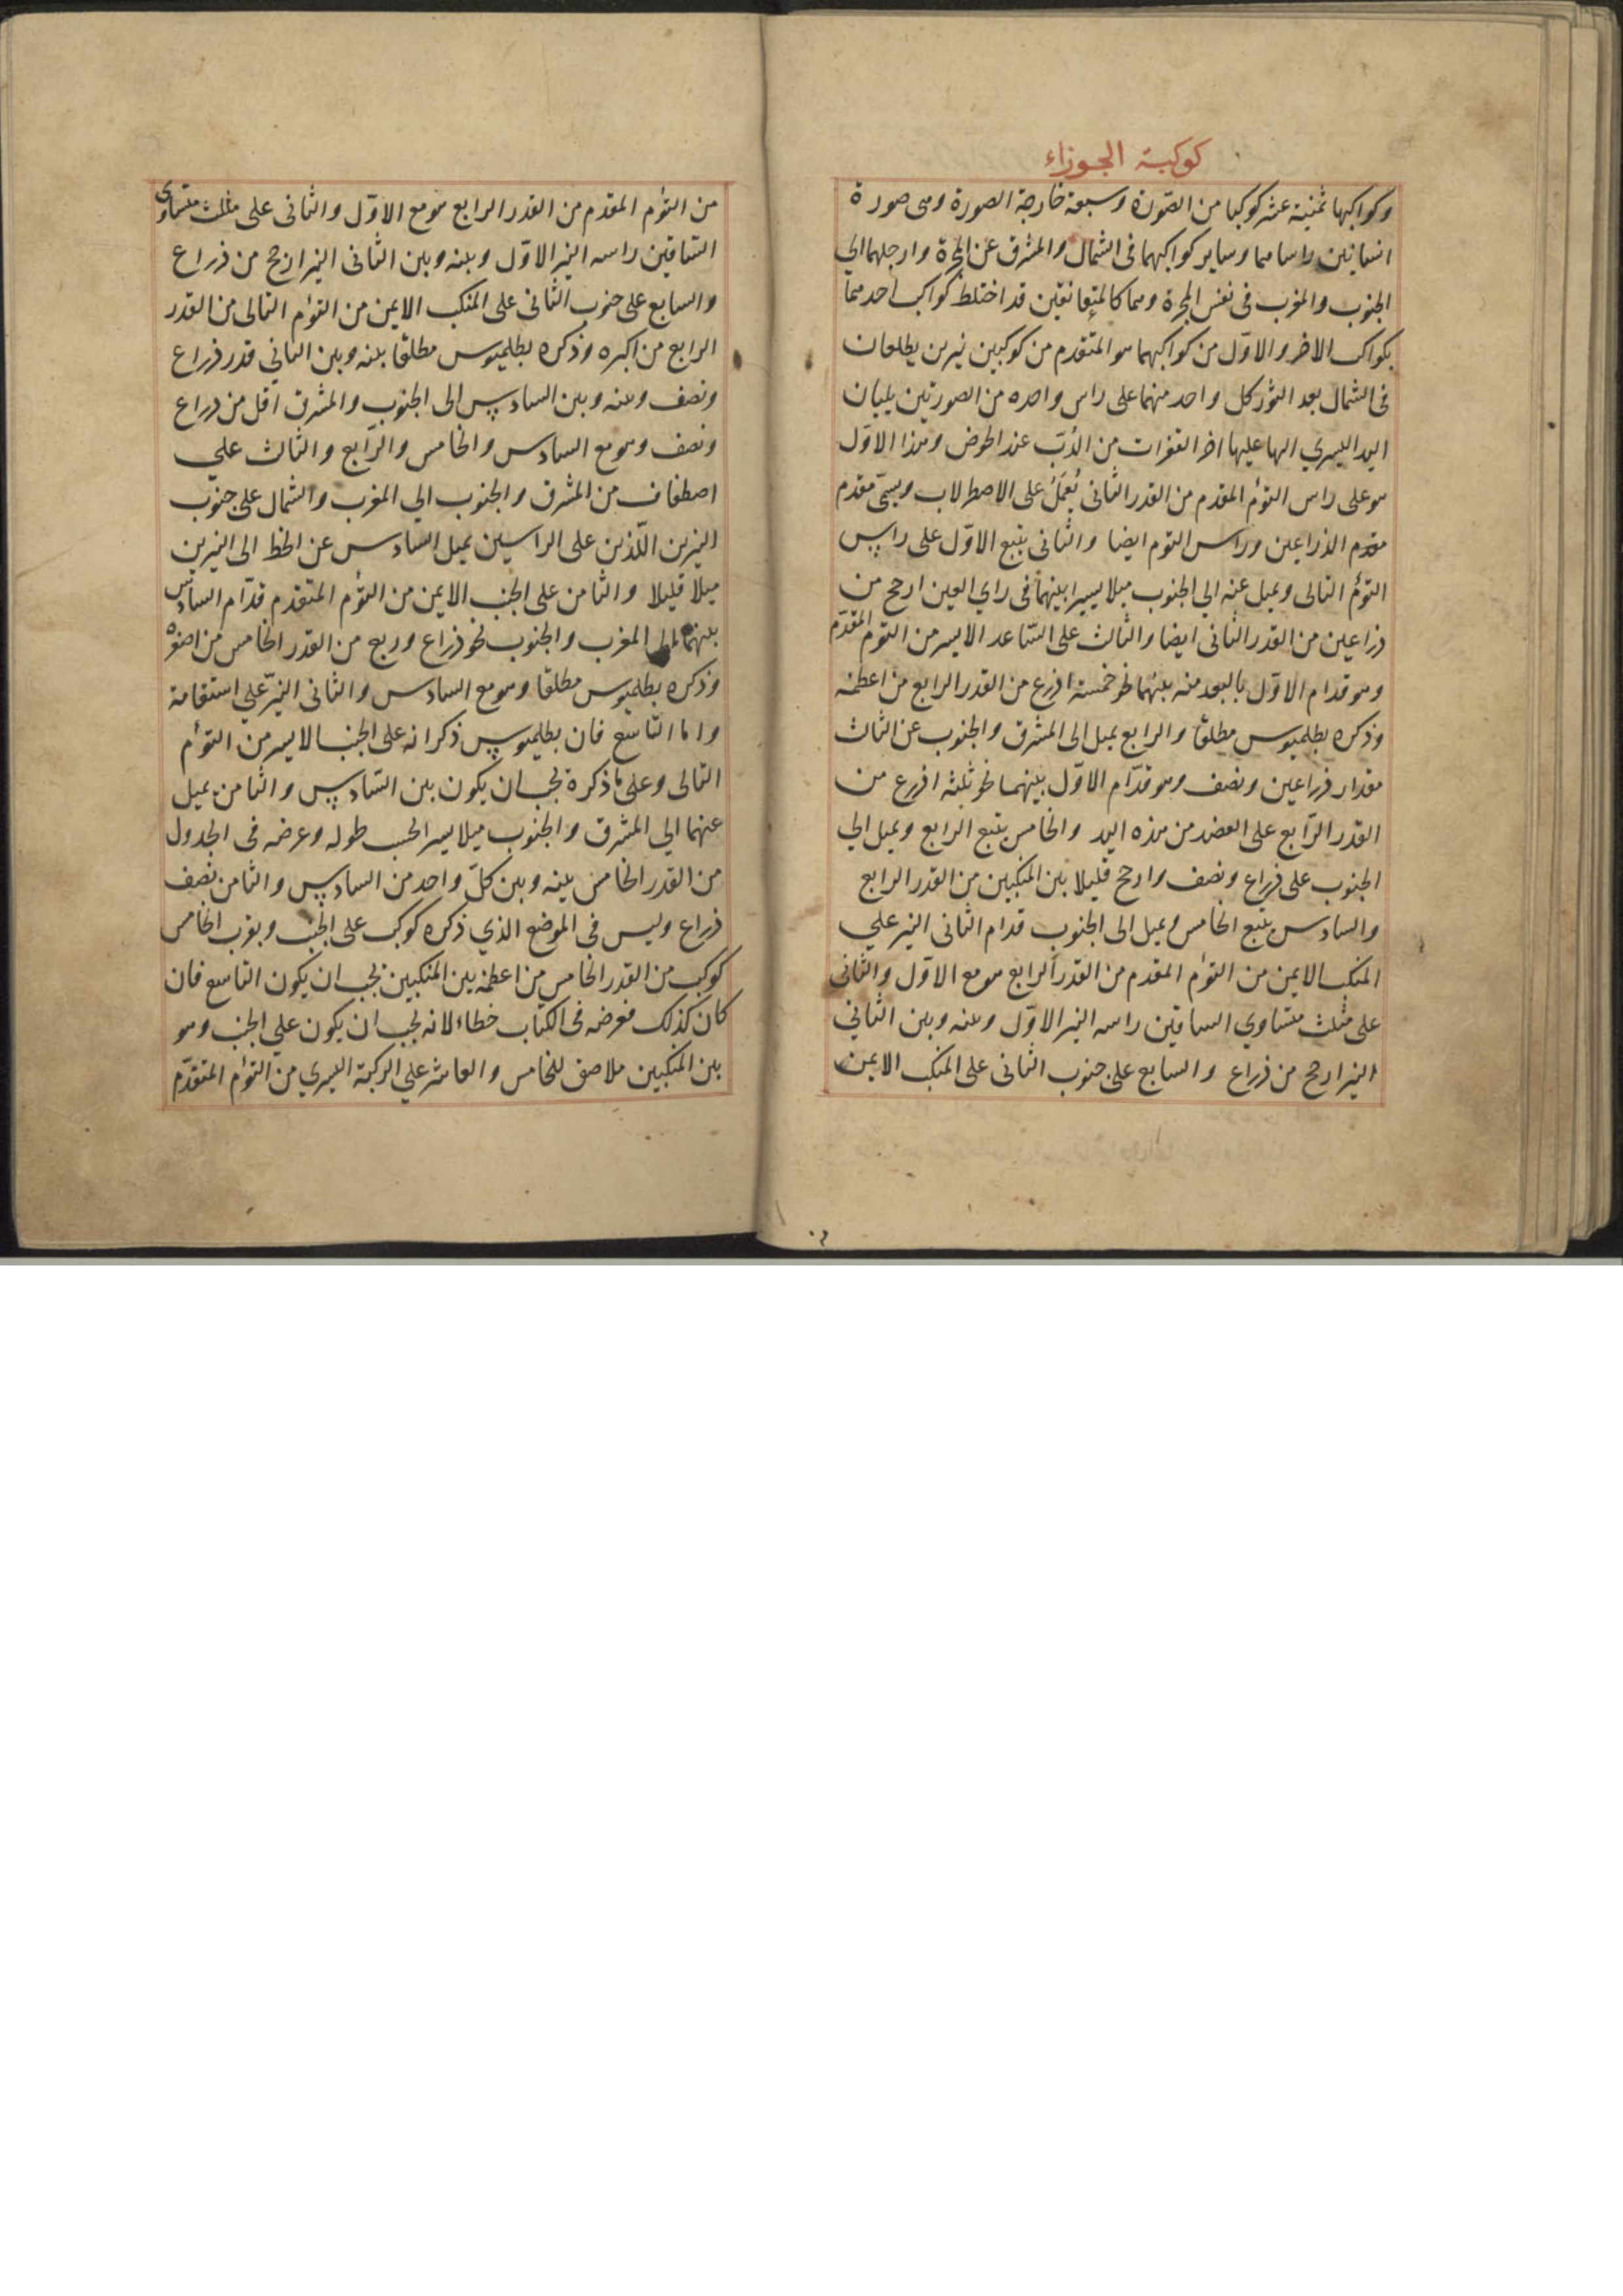 كوكبة الجوزاء
وكواكبها ثمنية عشر كوكبا من الصورة وسبعة خارجة الصورة وهى صورة
انسانين راساهما وساير كواكبهما فى الشمال والمشرق عن المجرة وارجلهما الي
الجنوب والمغرب فى نفس المجرة وهما كالمتعانقين قد اختلط كواكب احدهما
بكواكب الاخر والاوّل من كواكبهما هو المتقدم من كوكبين نيرين يطلعان
فى الشمال بعد الثور كل واحد منهما على راس واحده من الصورتين يليان
اليد اليسري التها عليها اخر القفزات من الدّبّ عند الحوض وهذا الاوّل
هو على راس التؤم المقدم من القدر الثانى يُعمَلُ على الاصطرلاب ويسمّى مقدم
مقدم الذراعين وراس التوم ايضا والثانى يتبع الاوّل على راس
التؤم التالى ويميل عنه الي الجنوب ميلا يسيرا بينهما فى راي العين ارجح من
ذراعين من القدر الثانى ايضا والثالث على السّاعد الايسر من التوم المقدّم
وهو قدام الاوّل بالبعد منه بينهما نحو خمسة اذرع من القدر الرابع من اعظمه
وذكره بطلميوس مطلقا والرابع يميل الى المشرق والجنوب عن الثالث
مقدار ذراعين ونصف وهو قدّام الاوّل بينهما نحو ثلثة اذرع من
القدر الرّابع على العضد من هذه اليد والخامس يتبع الرابع ويميل الي
الجنوب على ذراع ونصف وارجح قليلا بين المنكبين من القدر الرابع
والسادس يتبع الخامس ويميل الى الجنوب قدام الثانى النير علي
المنكب الايمن من التوام المقدم من القدر الرابع هو مع الاوّل والثانى
على مثلث متساوي الساقين راسه النير الاوّل وبينه وبين الثاني
النير ارجح من ذراع والسابع على جنوب الثانى على المنكب الايمن
من التوم المقدم من القدر الرابع هو مع الاوّل والثانى على مثلث متساوى
السّاقين راسه النير الاوّل وبينه وبين الثانى النير ارجح من ذراع
والسابع على جنوب الثانى على المنكب الايمن من التوام التالى من القدر
الرابع من اكبره وذكره بطلميوس مطلقا بينه وبين الثاني قدر ذراع
ونصف وبينه وبين السادس الى الجنوب والمشرق اقل من ذراع
ونصف وهو مع السادس والخامس والرّابع والثالث علي
اصطفاف من المشرق والجنوب الي المغرب والشمال على جنوب
النيرين اللّذين على الراسين يميل السادس عن الخط الى النيرين
ميلا قليلا والثامن على الجنب الايمن من التؤم المتقدم قدّام السادس
بينهما الى المغرب والجنوب نحو ذراع وربع من القدر الخامس من اصغره
وذكره بطلميوس مطلقا وهو مع السادس والثانى النيّر علي استقامة
واما التاسع فان بطلميوس ذكر انه على الجنب الايسر من التوام
التالى وعلى ما ذكرة يجب ان يكون بين السّادس والثامن يميل
عنهما الي المشرق والجنوب ميلا يسيرا بحسب طوله وعرضه فى الجدول
من القدر الخامس بينه وبين كلّ واحد من السادس والثامن نصف
ذراع وليس فى الموضع الذي ذكره كوكب على الجنب وبقرب الخامس
كوكب من القدر الخامس من اعظمه بين المنكبين يجب ان يكون التاسع فان
كان كذلك فعرضه فى الكتاب خطاء لانه يجب ان يكون علي الجنب وهو
بين المنكبين ملاصق للخامس والعاشر علي الركبة اليسري من التوام المتقدّم